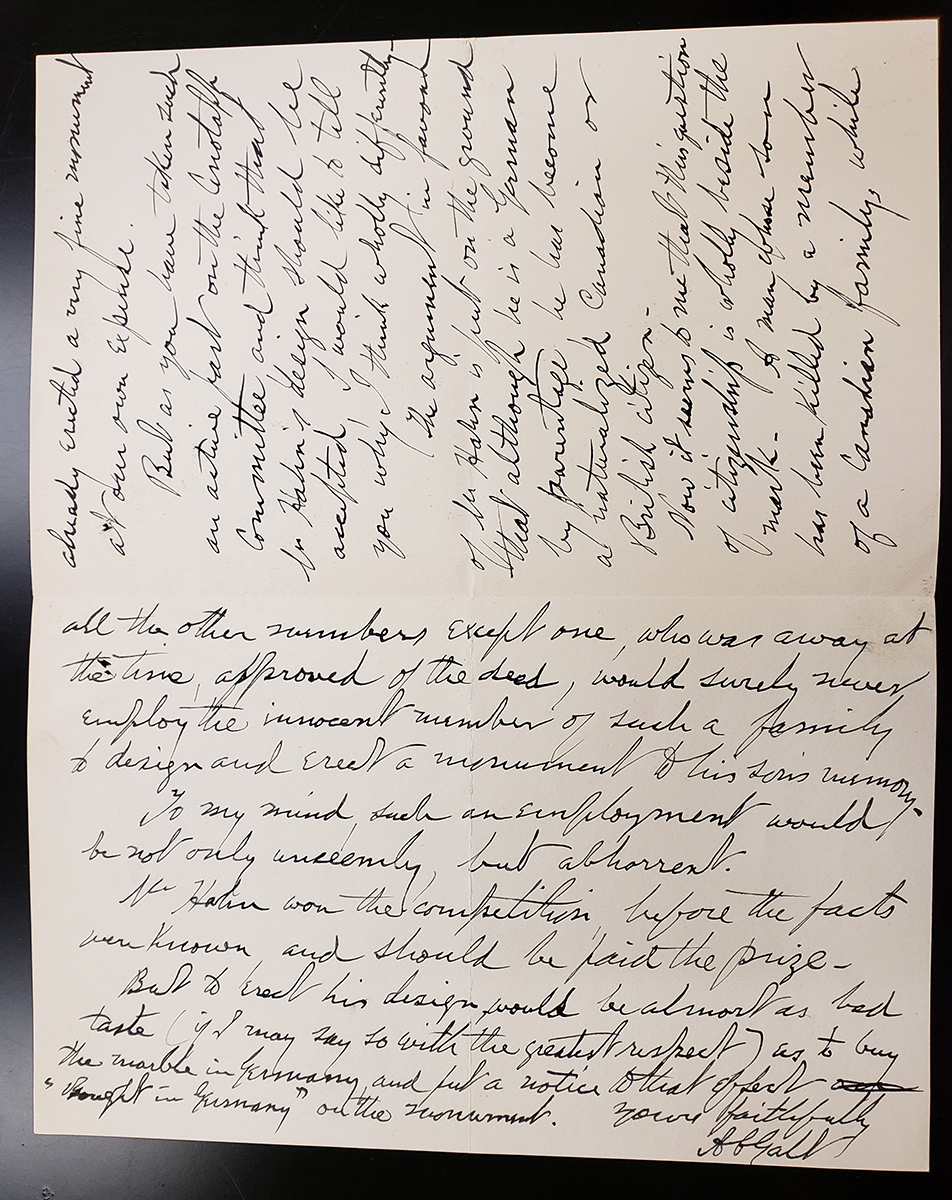 already erected a very fine monument
at our own expense.
But as you have taken such
an active part on the Cenotaph
Committee and think that
Mr Hahn's design should be
accepted I would like to tell
you why I think wholly differently-
The argument in favour
of Mr Hahn is put on the ground
that although he is a German
by parentage, he has become
a naturalized Canadian or
British citizen-
Now it seems to me that this question
of citizenship is wholly beside the
mark- A man whose son
has been killed by a member
of a Canadian family, while
all the other members except one, who was away at
the time, approved of the deed, would surely never
employ the innocent member of such a family
to design and erect a monument to his son's memory-
To my mind, such an employment would
be not only unseemly, but abhorrent.
Mr Hahn won the competition, before the facts
were known, and should be paid the prize-
But to erect his design would be almost as bad
taste (if I may say so with the greatest respect) as to buy
the marble in Germany, and put a notice to that effect
"bought in Germany" on the monument. Yours faithfully
A C Galt